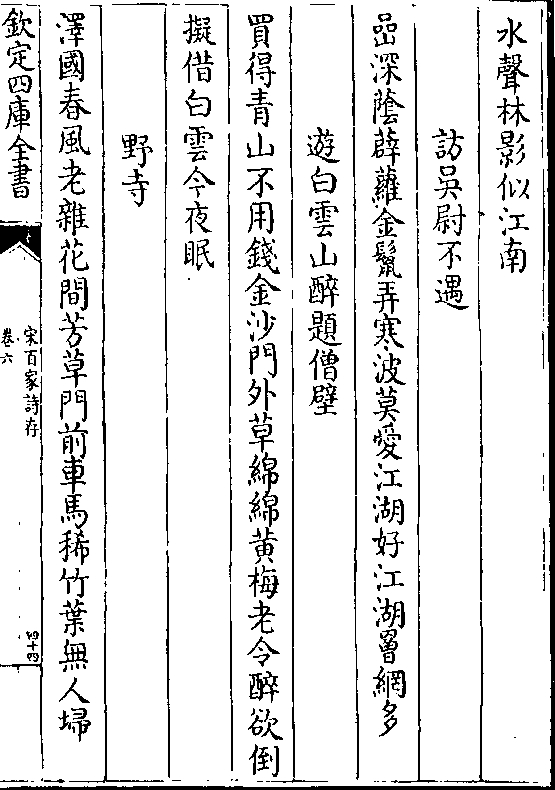 水聲林影似江南
訪吳尉不遇
嵒深蔭薜蘿金鬣弄寒波莫愛江湖好江湖罾網多
遊白雲山醉題僧壁
買得青山不用錢金沙門外草綿綿黄梅老令醉欲倒
擬借白雲今夜眠
野寺
澤國春風老雜花間芳草門前車馬稀竹葉無人埽
欽定四庫全書
宋百家詩存
卷六
四十四